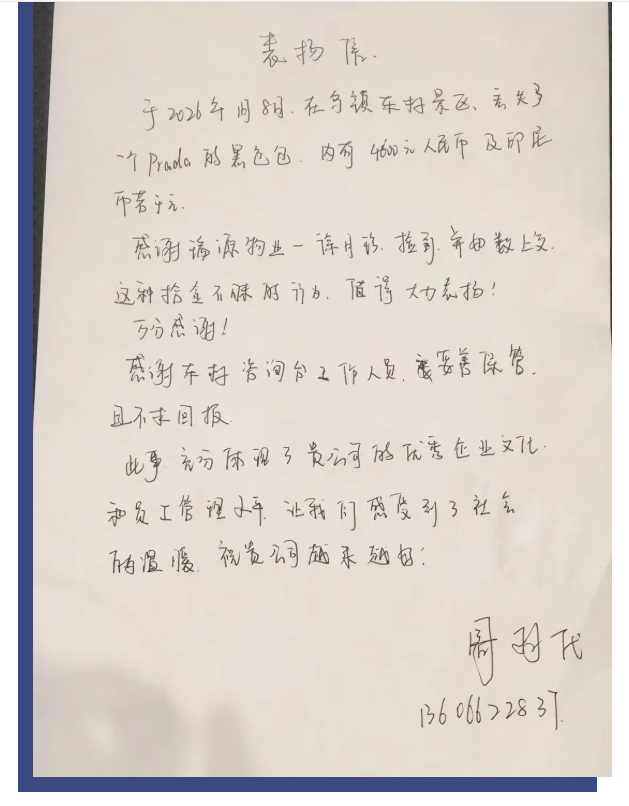 表扬信.
于2026年1月8日.在乌镇东村景区、丢失了
一个Prada的黑色包.内有4600元人民币及印尼
币若干元.
感谢瑞源物业一许月珍.捡到.并如数上交.
这种拾金不昧的行为.值得大力表扬!
万分感谢!
感谢东村咨询台工作人员.妥善保管.
且不求回报.
此事.充分体现了贵公司的优秀企业文化.
和员工管理水平.让我们感受到了社会
的温暖.祝贵公司越来越好!
周 代
13606622837.